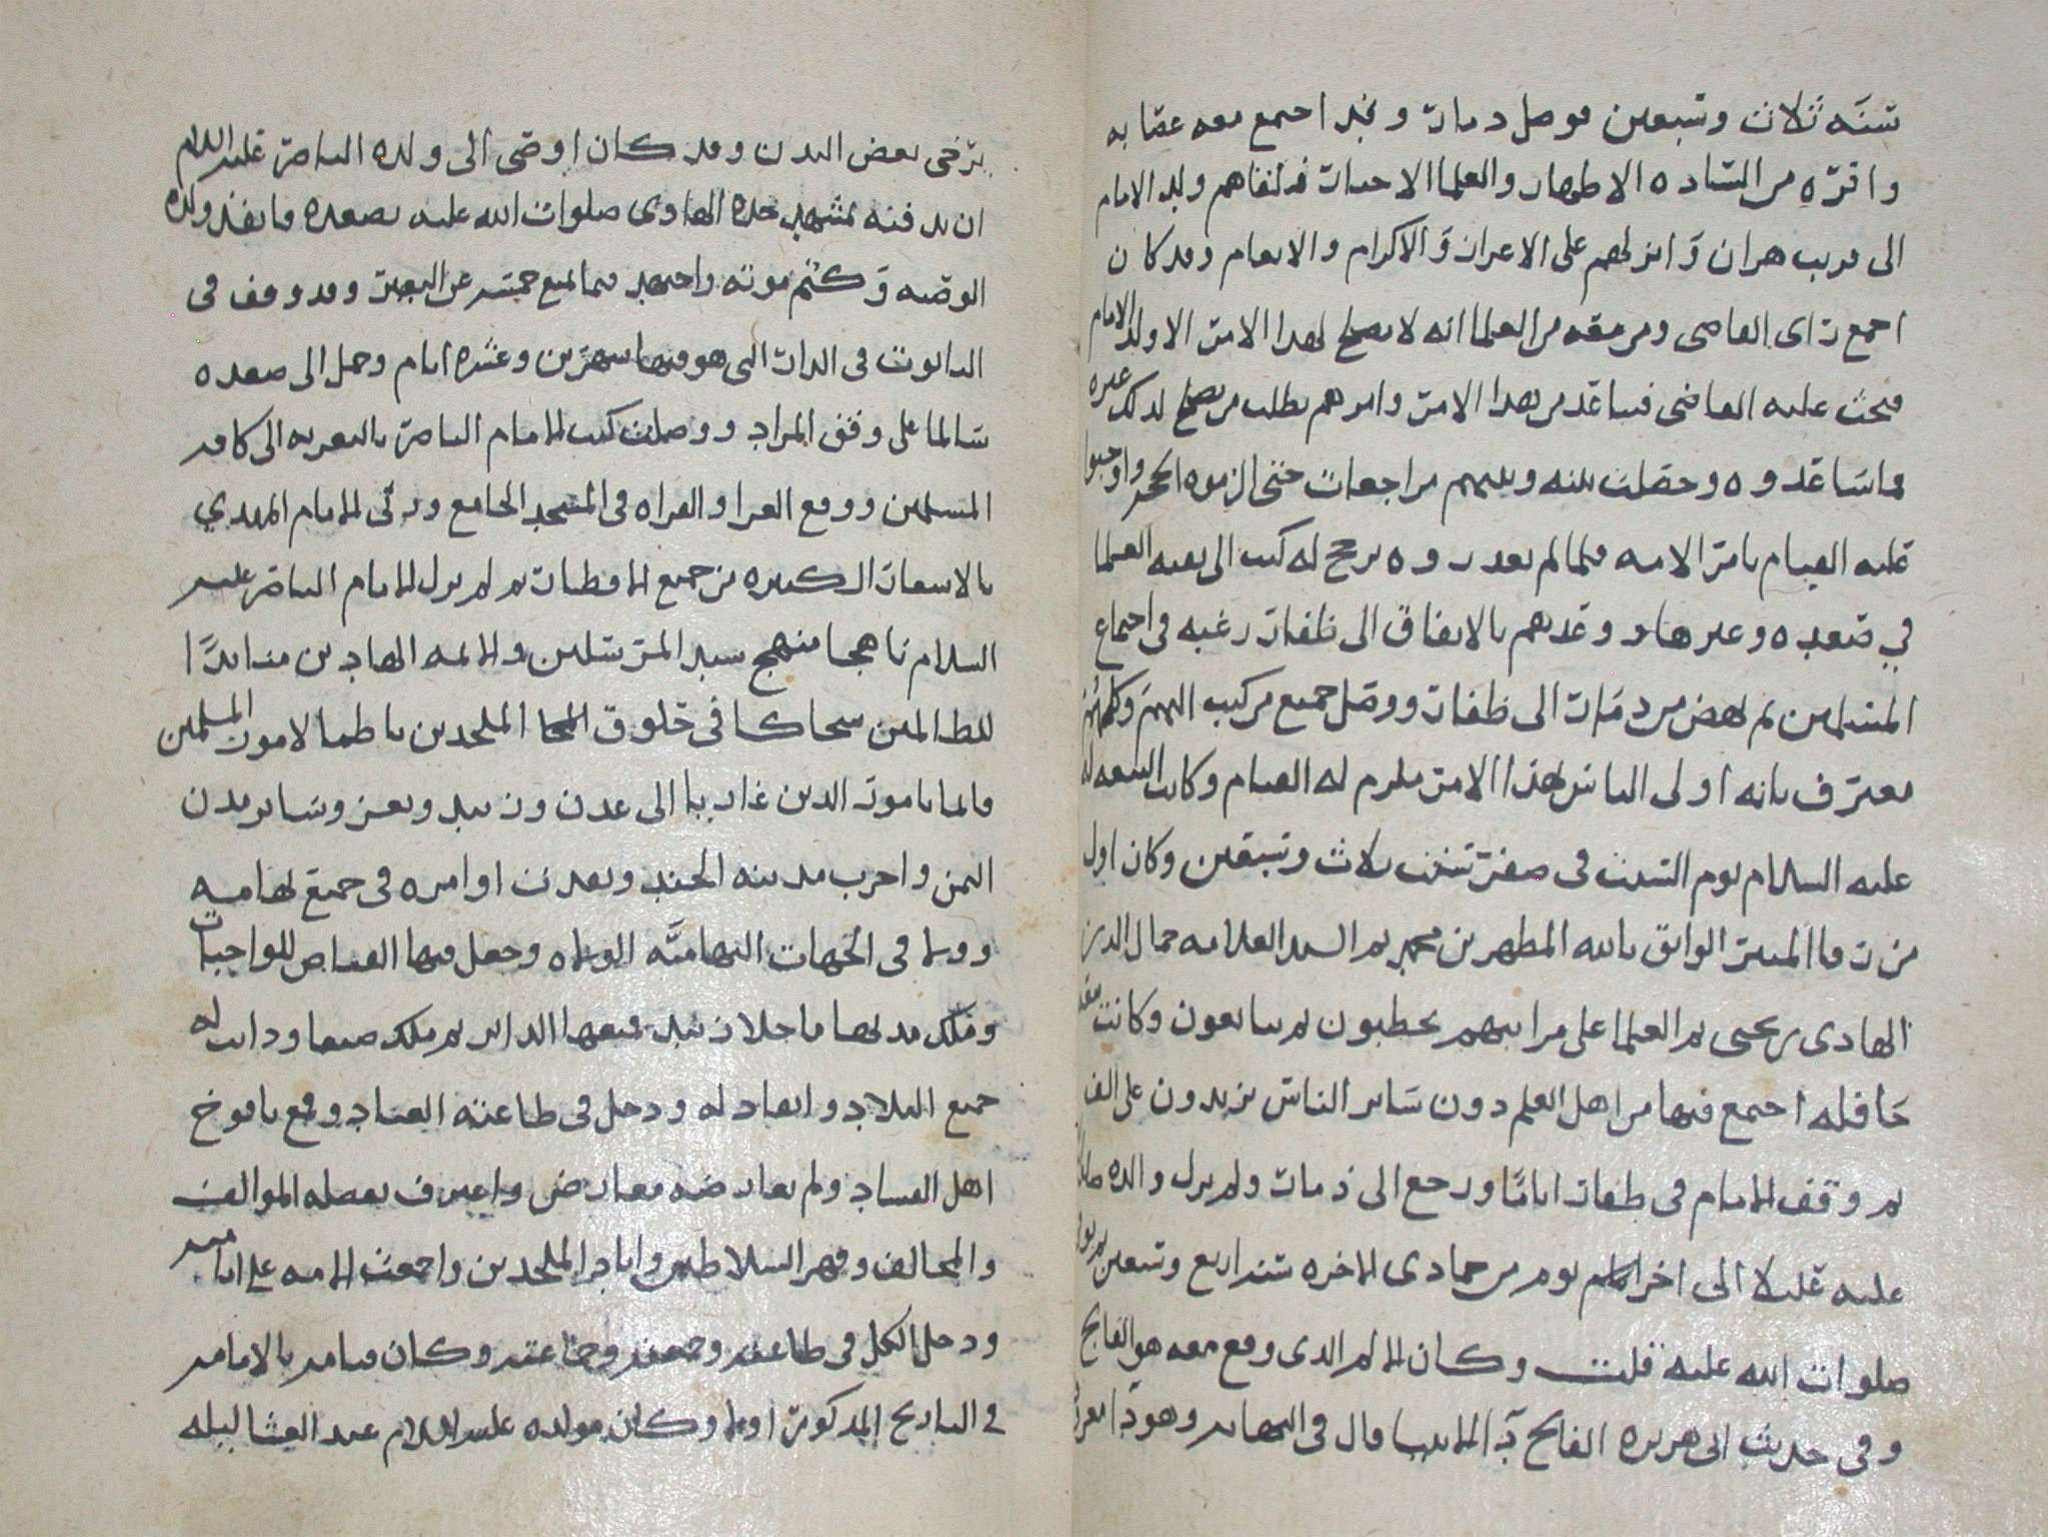 سنه ثلاث وسبعين فوصل ذمار وقد اجتمع معه عصابه
وافره من الساده الاطهار والعلما الاحبار فتلقاهم ولد الامام
الى قريب هران وانزلهم على الاعزاز والاكرام والانعام وقد كان
اجمع راى القاضى ومن معه من العلما انه لا يصلح لهذا الامر الا ولد الامام
فبحث عليه القاضى فساعد من هذا الامر وامرهم بطلب من يصلح لذلك غيره
فما ساعدوه وحصلت بينه وبينهم مراجعات حتى الزموه الحجه واوجبوا
عليه القيام بامر الامه فلما لم يعذروه ترجح له كتب الى بقيه العلما
في صعده وغيرها ووعدهم بالاتفاق الى ظفار رغبه فى اجتماع
المسلمين ثم نهض من ذمار الى ظفار ووصل جميع من كتب اليهم وكلهم
معترف بانه اولى الناس بهذا الامر فلزم له القيام وكانت البيعه له
عليه السلام يوم السبت فى صفر سنت ثلاث وسبعين وكان اول
من رقا المنبر الواثق بالله المطهر بن محمد ثم السيد العلامه جمال الدين
الهادى بن يحيى ثم العلما على مراتبهم يخطبون ثم يبايعون وكانت
حافله اجتمع فيها من اهل العلم دون ساير الناس يزيدون على الف
ثم وقف الامام فى ظفار اياما ورجع الى ذمار ولم يزل والده
عليه عليلا الى اخر يوم من جمادى الاخره سنه اربع وسبعين
صلوات الله عليه قلت وكان الالم الذى وقع معه هو الفالج
وفى حديث ابى هريره الفالج دآ الانبيا قال فى النهايه وهو دآ
يرخى بعض البدن وقد كان اوصى الى ولده الناصر عليه السلام
ان يدفنه بمشهد جده الهادى صلوات الله عليه بصعده فانفذ ولده
الوصيه وكتم موته واجتهد فيما يمنع جسمه عن التغير وقد وقف فى
التابوت فى الدار التى هو فيها شهرين وعشره ايام وحمل الى صعده
سالما على وفق المراد ووصلت كتب الامام الناصر بالتعزيه الى كافه
المسلمين ووقع العزا والقراه فى المسجد الجامع ورثى الامام المهدي
بالاشعار الكثيره من جميع الاقطار ثم لم يزل الامام الناصر عليه
السلام ناهجا منهج سيد المرسلين والايمه الهادين منابذا
للظالمين شجا كافى حلوق الملحدين ناظما لامور المسلمين
قايما بامور الدين غازيا الى عدن وزبيد وتعز وساير مدن
اليمن واخرب مدينه الجند ونفذت اوامره فى جميع تهامه
وولا فى الجهات التهاميه الولاه وجعل فيها القباض للواجبات
وملك مدنها ما خلا زبيد فمنعها الداير ثم ملك صنعا ودانت له
جميع البلاد وانقاد له ودخل فى طاعته العباد وقمع يافوخ
اهل الفساد ولم يعارضه معارض واعترف بفضله الموالف
والمخالف وقهر السلاطين واباد الملحدين واجمعت الامه على امامته
ودخل الكل فى طاعته وجمعته وجماعته وكان قيامه بالامامه
فى التاريخ المذكور اولا وكان مولده عليه السلام عند العشا ليله